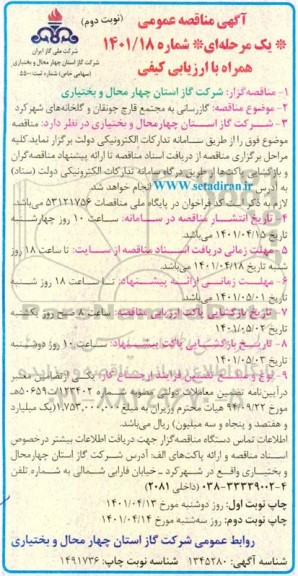 آگهی مناقصه عمومی (نوبت دوم)
* یک مرحله‌ای* شماره ۱۴۰۱/۱۸
همراه با ارزیابی کیفی
شرکت ملی گاز ایران
شرکت گاز استان چهار محال و بختیاری
(سهامی خاص) شماره ثبت: ۵۵۰۰
۱- مناقصه‌گزار: شرکت گاز استان چهار محال و بختیاری
۲- موضوع مناقصه: گازرسانی به مجتمع قارچ جونقان و گلخانه‌های شهرکرد
۳- شرکت گاز استان چهارمحال و بختیاری در نظر دارد: مناقصه
موضوع فوق را از طریق سامانه تدارکات الکترونیکی دولت برگزار نماید. کلیه
مراحل برگزاری مناقصه از دریافت اسناد مناقصه تا ارائه پیشنهاد مناقصه‌گران
و بازگشایی پاکت‌ها از طریق درگاه سامانه تدارکات الکترونیکی دولت (ستاد)
به آدرس www.setadiran.ir انجام خواهد شد.
لازم به ذکر است کد فراخوان در پایگاه ملی مناقصات ۵۳۱۲۱۷۵۶ می‌باشد.
۴- تاریخ انتشار مناقصه در سامانه: ساعت ۱۰ روز چهارشنبه
تاریخ ۱۴۰۱/۰۴/۱۵ می‌باشد.
۵- مهلت زمانی دریافت اسناد مناقصه از سایت: تا ساعت ۱۸ روز
شنبه تاریخ ۱۴۰۱/۰۴/۱۸ می‌باشد.
۶- مهلت زمانی ارائه پیشنهاد: تا ساعت ۱۸ روز شنبه
تاریخ ۱۴۰۱/۰۵/۰۱ می‌باشد.
۷- تاریخ بازگشایی پاکت ارزیابی مناقصه: ساعت ۸ صبح روز یکشنبه
تاریخ ۱۴۰۱/۰۵/۰۲
۸- تاریخ بازگشایی پاکت پیشنهاد: ساعت ۱۰ روز دوشنبه
تاریخ ۱۴۰۱/۰۵/۰۳
۹- نوع و مبلغ تضمین فرایند ارجاع کار: یکی از تضامین معتبر
در آیین‌نامه تضمین معاملات دولتی مصوبه شماره ۱۲۳۴۰۲/ت۵۰۶۵۹ه
مورخ ۹۴/۰۹/۲۲ هیات محترم وزیران به مبلغ ۱.۷۵۳.۰۰۰.۰۰۰ (یک میلیارد
و هفتصد و پنجاه و سه میلیون) ریال می‌باشد.
اطلاعات تماس دستگاه مناقصه‌گزار جهت دریافت اطلاعات بیشتر درخصوص
اسناد مناقصه و ارائه پاکت‌های الف: آدرس شرکت گاز استان چهارمحال
و بختیاری واقع در شهرکرد - خیابان فارابی شمالی به شماره تلفن
۴-۳۳۳۳۹۰۰۲-۰۳۸ (داخلی ۲۰۸۱)
چاپ نوبت اول: روز دوشنبه مورخ ۱۴۰۱/۰۴/۱۳
چاپ نوبت دوم: روز سه‌شنبه مورخ ۱۴۰۱/۰۴/۱۴
روابط عمومی شرکت گاز استان چهار محال و بختیاری
شناسه آگهی: ۱۳۴۵۲۸۰ شناسه نوبت چاپ: ۱۴۹۱۷۳۶